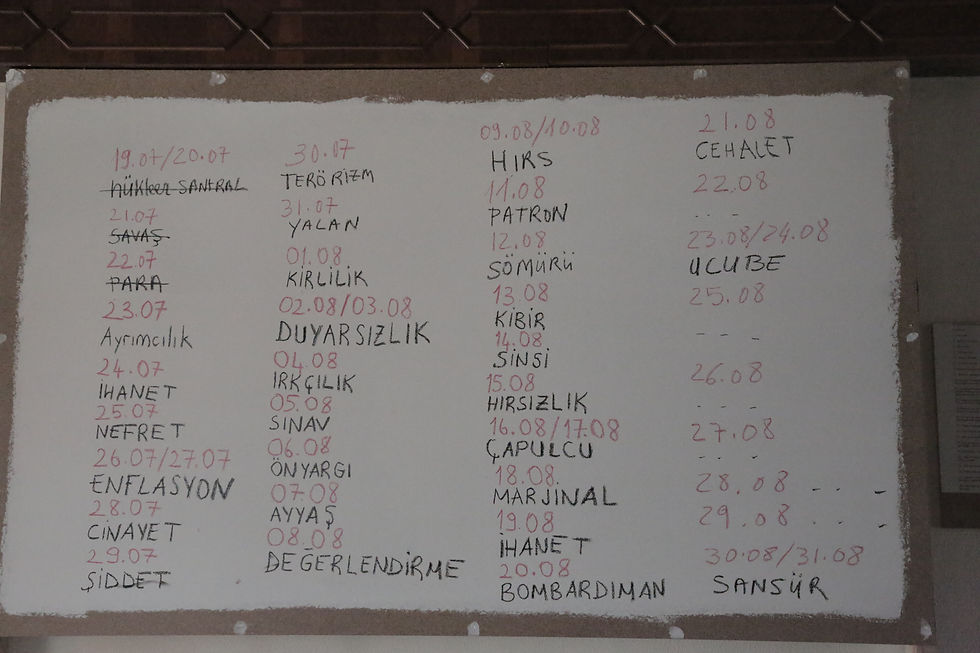 19.07/20.07
nükleer SANTRAL
21.07
SAVAŞ
22.07
PARA
23.07
Ayrımcılık
24.07
İHANET
25.07
NEFRET
26.07/27.07
ENFLASYON
28.07
CİNAYET
29.07
ŞİDDET
30.07
TERÖRİZM
31.07
YALAN
01.08
KİRLİLİK
02.08/03.08
DUYARSIZLIK
04.08
IRKÇILIK
05.08
SINAV
06.08
ÖNYARGI
07.08
AYYAŞ
08.08
DEĞERLENDİRME
09.08/10.08
HIRS
11.08
PATRON
12.08
SÖMÜRÜ
13.08
KİBİR
14.08
SİNSİ
15.08
HIRSIZLIK
16.08/17.08
ÇAPULCU
18.08.
MARJİNAL
19.08
İHANET
20.08
BOMBARDIMAN
21.08
CEHALET
22.08
- - -
23.08/24.08
UCUBE
25.08
- - -
26.08
- - -
27.08
- - -
28.08 - - -
29.08 - - -
30.08/31.08
SANSÜR